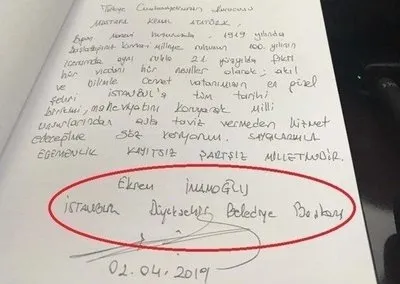 Türkiye Cumhuriyetinin Kurucusu
Mustafa Kemal ATATÜRK.
manevi huzurunuzda, 1919 yılında
başlattığınız kuvayi milliye ruhunun 100. yılının
aynı ruhla 21. yüzyılda fikri
hür vicdanı hür nesiller olarak; akıl
ve bilimle cennet vatanımızın en güzel
şehri İSTANBUL'a tüm tarihi
birikimi, maneviyatını koruyarak milli
asla taviz vermeden hizmet
edeceğime SÖZ veriyorum. SAYGILARIMLA
EGEMENLİK KAYITSIZ ŞARTSIZ MİLLETİNDİR.
Ekrem İMAMOĞLU
İSTANBUL Büyükşehir Belediye Başkanı
02.04.2019